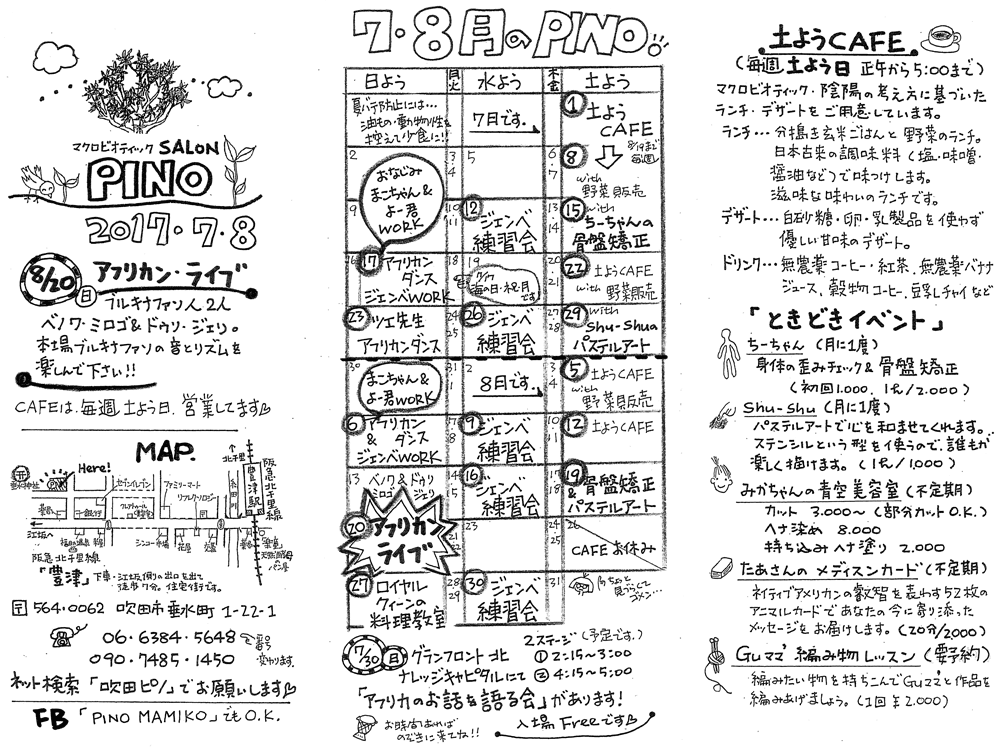 マクロビオティック SALON
PINO
2017・7・8
8/20 日 アフリカン・ライブ
ブルキナファソ人 2人
ベノワ・ミロゴ& ドゥソ・ジェリ。
本場ブルキナファソの音とリズムを
楽しんで下さい!!
CAFEは、毎週土よう日、営業してます
MAP.
Here!
北千里
阪急北千里線
豊津駅
セブンイレブン
ファミリーマート
リフレクソロジー
江坂へ
阪急北千里線
「豊津」下車・江坂側の出口を出て
徒歩7分。住宅街です。
〒564・0062 吹田市垂水町1-22-1
06・6384・5648
090・7485・1450 番号変わります。
ネット検索「吹田ピノ」でお願いします
FB「PINO MAMIKO」でもO.K.
7・8月のPINO!!
日よう 月火 水よう 木金 土よう
夏バテ防止には…
油もの・動物性を
控えて少食に!!
7月です。
1 土よう
CAFE
8/19まで
毎週
2 3・4 5 6・7 8 with
野菜販売
おなじみ
まこちゃん&
よー君
WORK
9 10 11 12 ジェンベ
練習会
13・14 15 with
ちーちゃんの
骨盤矯正
16 17 アフリカン
ダンス
ジェンベWORK
18 19
7/17
海の日・祝月
です
20・21 22 土ようCAFE
with 野菜販売
23 ツェ先生
アフリカンダンス
24・25 26 ジェンベ
練習会
27・28 29 with
Shu-Shua
パステルアート
30 まこちゃん&
よー君WORK
31 1 2 8月です。
3・4 5 土ようCAFE
with
野菜販売
6 アフリカン
& ダンス
ジェンベWORK
7・8 9 ジェンベ
練習会
10・11 12 土ようCAFE
13 ベノワ&ドゥソ
ミロゴ ジェリ
14・15 16 ジェンベ
練習会
19 骨盤矯正
&
パステルアート
20 アフリカン
ライブ
23 24・25 26
CAFEお休み
27 ロイヤル
クィーンの
料理教室
28・29 30 ジェンベ
練習会
31
7/30 日 グランフロント北
ナレッジキャピタルにて
2ステージ(予定です。)
① 2:15~3:00
② 4:15~5:00
「アフリカのお話を語る会」があります!
お時間あれば
のぞきに来てね!!
入場 Freeです
土ようCAFE
(毎週土よう日 正午から5:00まで)
マクロビオティック・陰陽の考え方に基づいた
ランチ・デザートをご用意しています。
ランチ… 分搗き玄米ごはんと野菜のランチ。
日本古来の調味料(塩・味噌・
醤油など)で味つけします。
滋味な味わいのランチです。
デザート… 白砂糖・卵・乳製品を使わず
優しい甘味のデザート。
ドリンク… 無農薬コーヒー・紅茶、無農薬バナナ
ジュース、穀物コーヒー、豆乳チャイなど
「ときどきイベント」
ちーちゃん (月に1度)
身体の歪みチェック& 骨盤矯正
(初回1.000、1名/2.000)
Shu-Shu (月に1度)
パステルアートで心を和ませてくれます。
ステンシルという型を使うので、誰もが
楽しく描けます。(1名/1,000)
みかちゃんの青空美容室(不定期)
カット 3.000~ (部分カットO.K.)
ヘナ染め 8.000
持ち込みヘナ塗り 2.000
たあさんのメディスンカード(不定期)
ネイティブアメリカンの叡智を表わす52枚の
アニマルカードであなたの今に寄り添った
メッセージをお届けします。(20分/2000)
Guママ 編み物レッスン(要予約)
編みたい物を持ちこんでGuママと作品を
編みあげましょう。(1回¥2.000)